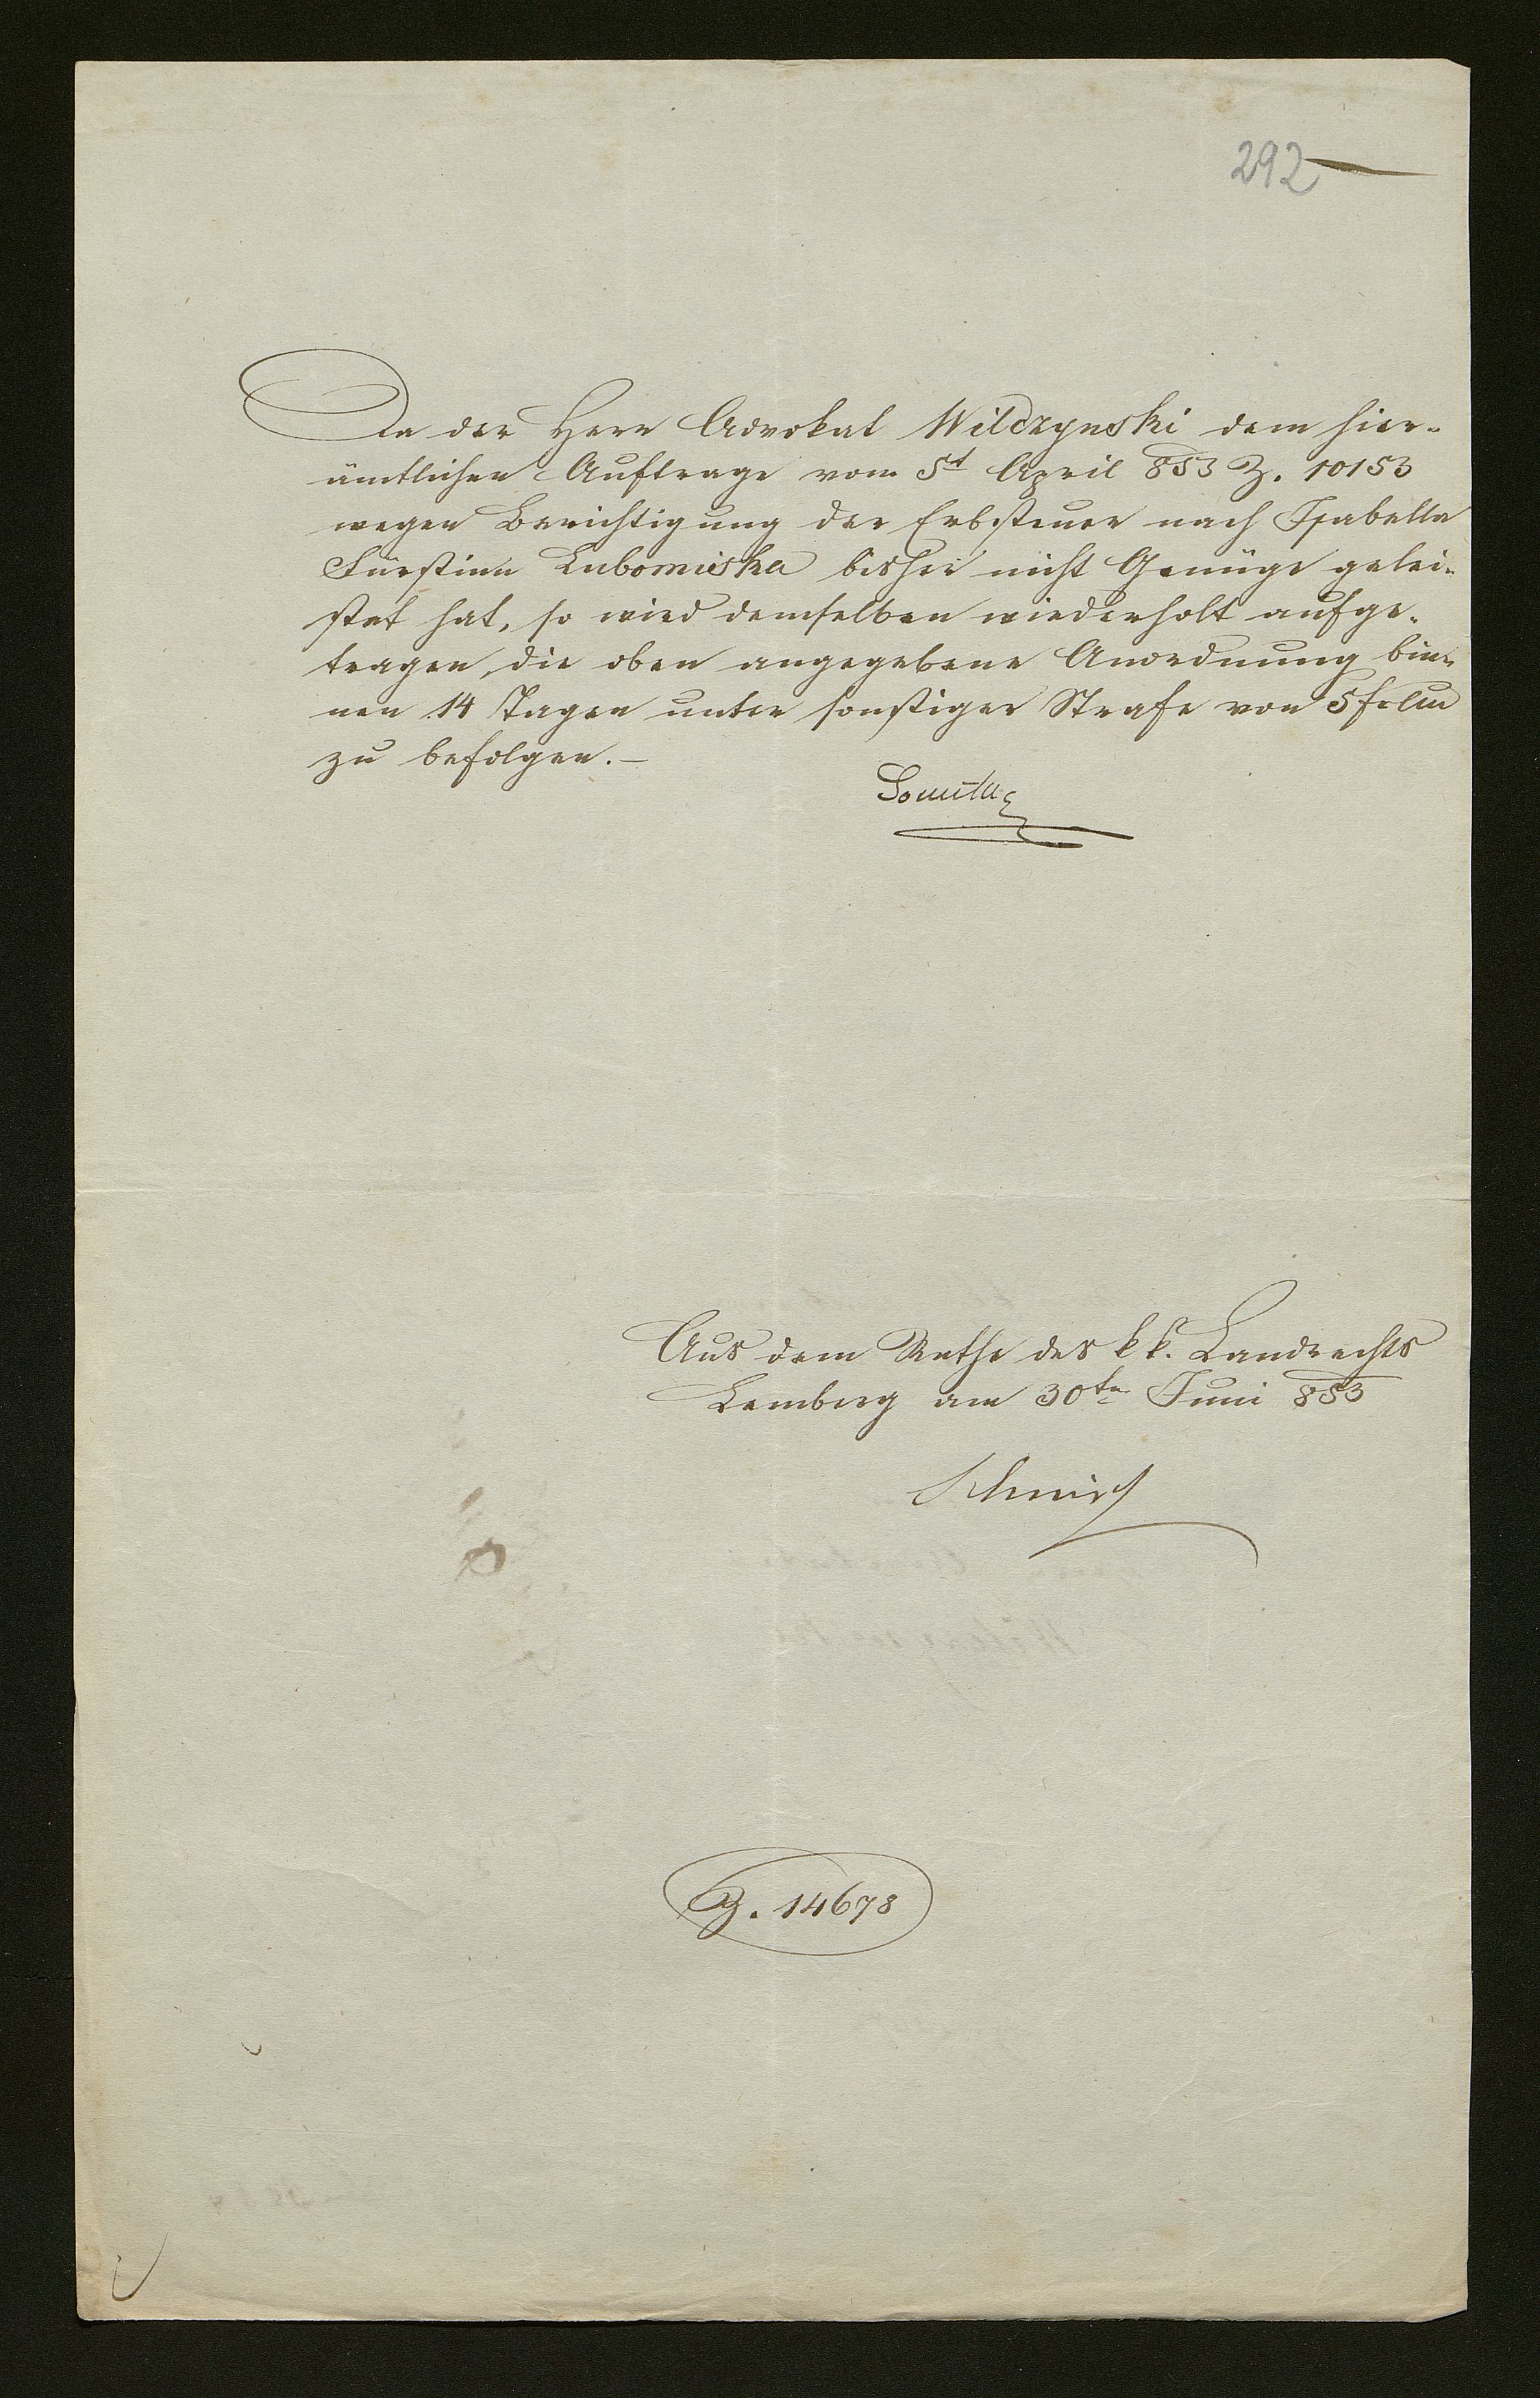 292
Da der Herr Advokat Wilczynski dem hier-
ämtlichen Auftrage vom 5t April 853 Z. 10153
wegen Berichtigung der Erbsteuer nach Isabella
Fürstinn Lubomirska bisher nicht Genüge gelei-
stet hat, so wird demselben wiederholt aufge-
tragen, die oben angegebene Anordnung bin-
nen 14 Tagen unter sonstiger Strafe von 5 f
zu befolgen.–
Aus dem Rathe des k k. Landrechts
Lemberg am 30ten Juni 853
Z. 14678